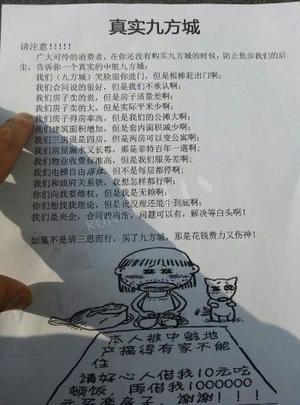 真实九方城
请注意!!!!!
广大可怜的消费者，在你还没有购买九方城的时候，防止您步我们的后
尘，告诉你一个真实的中航九方城；
我们（九方城）笑脸迎你进门，但是棍棒赶出门啊；
我们合同说的很好，但是我们不承认啊；
我们房子卖的贵，但是房子质量差啊；
我们房子卖的大，但是实际平米少啊；
我们房子得房率高，但是我们的公摊大啊；
我们建筑面积增加，但是套内面积减少啊；
我们三房说是四房，但是两房可以变公寓啊；
我们房屋漏水又长霉，那是等待百年一遇啊；
我们物业收费标准高，但是我们服务差啊；
我们电梯自由落体，但不是每层都停啊；
我们和政府关系铁，我想怎样都行啊；
你们向我要维权，但是我是无赖啊；
你们想找我理论，但是我没理还能牛到底啊；
我们是央企，合同政府沧，问题可以有，解决等白头啊！
如果不是请三思而行，买了九方城，那是花钱费力又伤神！
本人被中航地
产搞得有家不能
住
请好心人借我10元吃
顿饭，再借我1000000
元买套房子，谢谢！！！